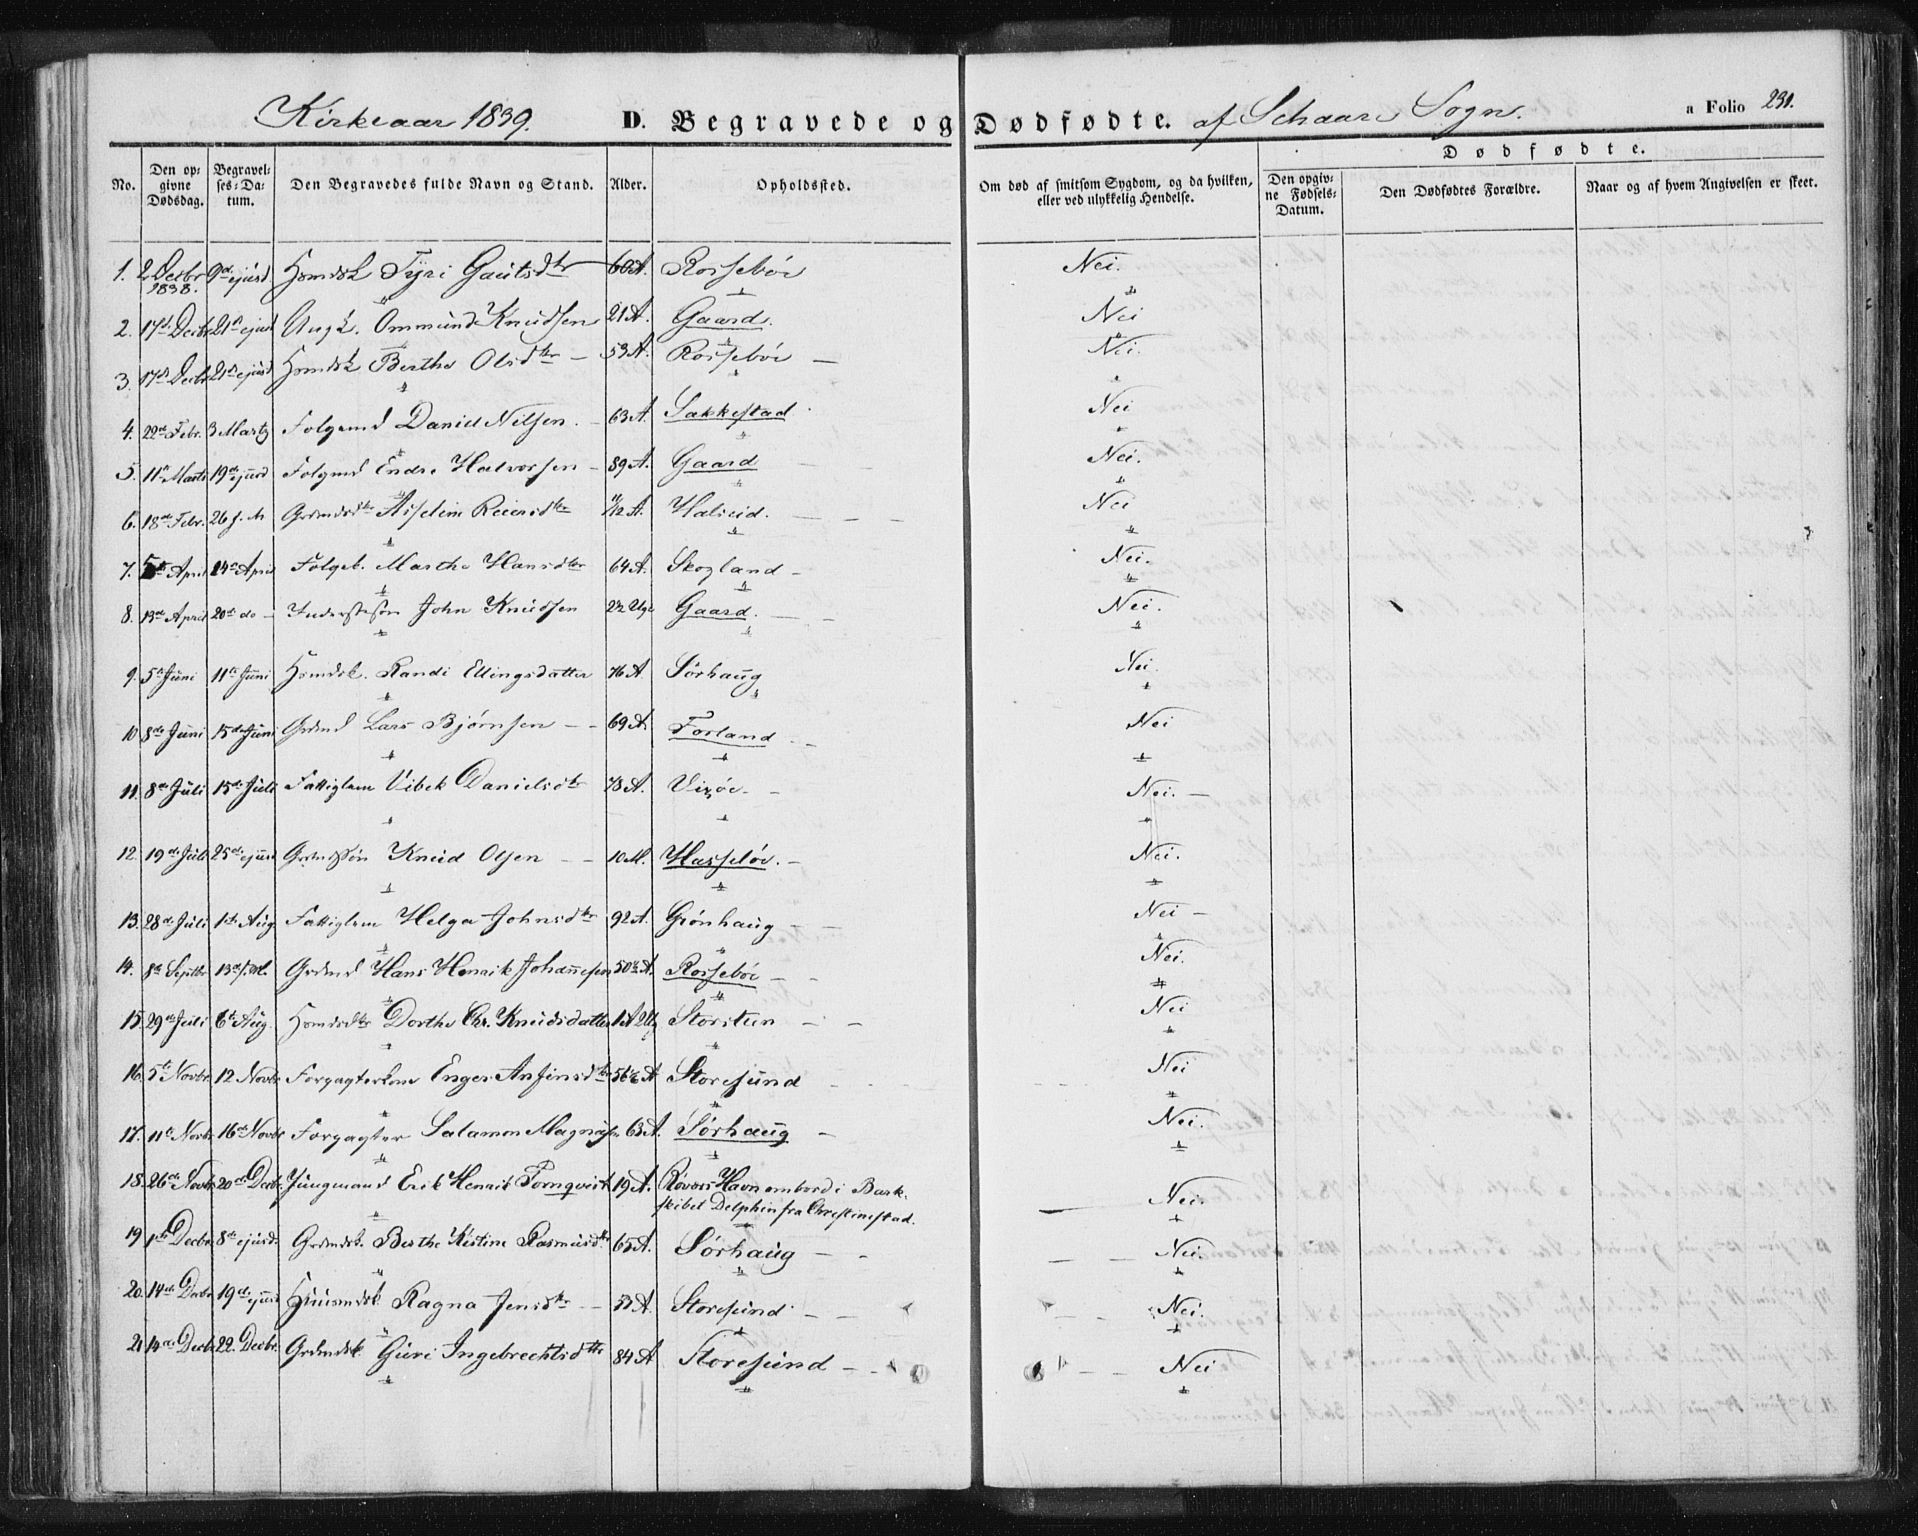 Kirkeaar 1839. D. Begravede og Dødfødte. af Schaare Sogn. a Folio 231.
Dødfødte.
No. Den opgivne Dødsdag. Begravelses-Datum. Den Begravedes fulde Navn og Stand. Alder. Opholdssted. Om død af smitsom Sygdom, og da hvilken, eller ved ulykkelig Hendelse. Den opgivne Fødsels-Datum. Den Dødfødtes Forældre. Naar og af hvem Angivelsen er skeet.
1. 2 Decbr 1838. 9de ejusd Hsmdsk Tyri Gautsdtr 60 A. Rossebøe Nei.
2. 17de Decbr 21de ejusd Ungk. Ommund Knudsen 21 A. Gaard. Nei
3. 17de Decbr 21de ejusd Hsmdsk Berthe Olsdtr — 53 A. Rossebøe — Nei.
4. 22de Febr. 3 Marty Folgemd Daniel Nilsen. — 63 A. Sakkestad Nei
5. 11te Marts 19de ejusd Folgmd Endre Halvorsen — 89 A. Gaard — Nei.
6. 18de Febr. 26 f. M Grdmdsdtr Asseline Reiersdtr 11/12 A. Halseid. — — — Nei
7. 5te April 14de April Følgek. Marthe Hansdtr 64 A. Skogland — Nei.
8. 13de April 20de do — Inderstesøn John Knudsen 2½ Uge Gaard. — — Nei.
9. 5te Juni 11te Juni Hsmdsk. Randi Ellingsdatter 76 A. Sørhaug Nei.
10 8de Juni 15de Juni Grdmd Lars Bjørnsen — — 69 A. Førland — — Nei
11. 8de Juli 15de Juli Fattiglem Vibek Danielsdtr 78 A. Vixøe. — Nei. —
12. 19de Juli 25de ejusd Grdmdssøn Knud Olsen — — 10 M. Hasseløe. — Nei.
13. 28de Juli 1ste Aug. Fattiglem Helga Johnsdtr 92 A. Grønhaug — — Nei —
14. 8de Septbr 13de f. M. Grdmd Hans Henrik Johannesen 50½ A. Rossebøe — — Nei.
15. 29de Juli 6te Aug. Hsmdsdtr Dorthe Chr. Knudsdatter 1 A 2 Ug Storsteen — — Nei
16. 5te Novbr 12 Novbr Forpagterkone Enger Anfinsdtr 56½ A Storesund — Nei
17. 11te Novbr 16de Novbr Forpagter Salamon Magnusen 63 A. Sørhaug — Nei.
18. 26de Novbr 20de Decbr. Jungmand Erik Henrik Tornqvist 19 A. Røvers Havn ombord i Bark- — Nei.
skibet Delphin fra Christinestad.
19 1ste Decbr 8de ejusd. Grdmdsk. Berthe Kistine Rasmusdtr. 65 A. Sørhaug — — — — Nei.
20. 14de Decbr 19de ejusd Huusmdsk. Ragna Jensdtr — — 57 A. Storesund — — Nei.
21 14de Decbr 22. Decbr. Grdmdsk. Guri Ingebrechtsdtr 84 A Storesund — — — — Nei